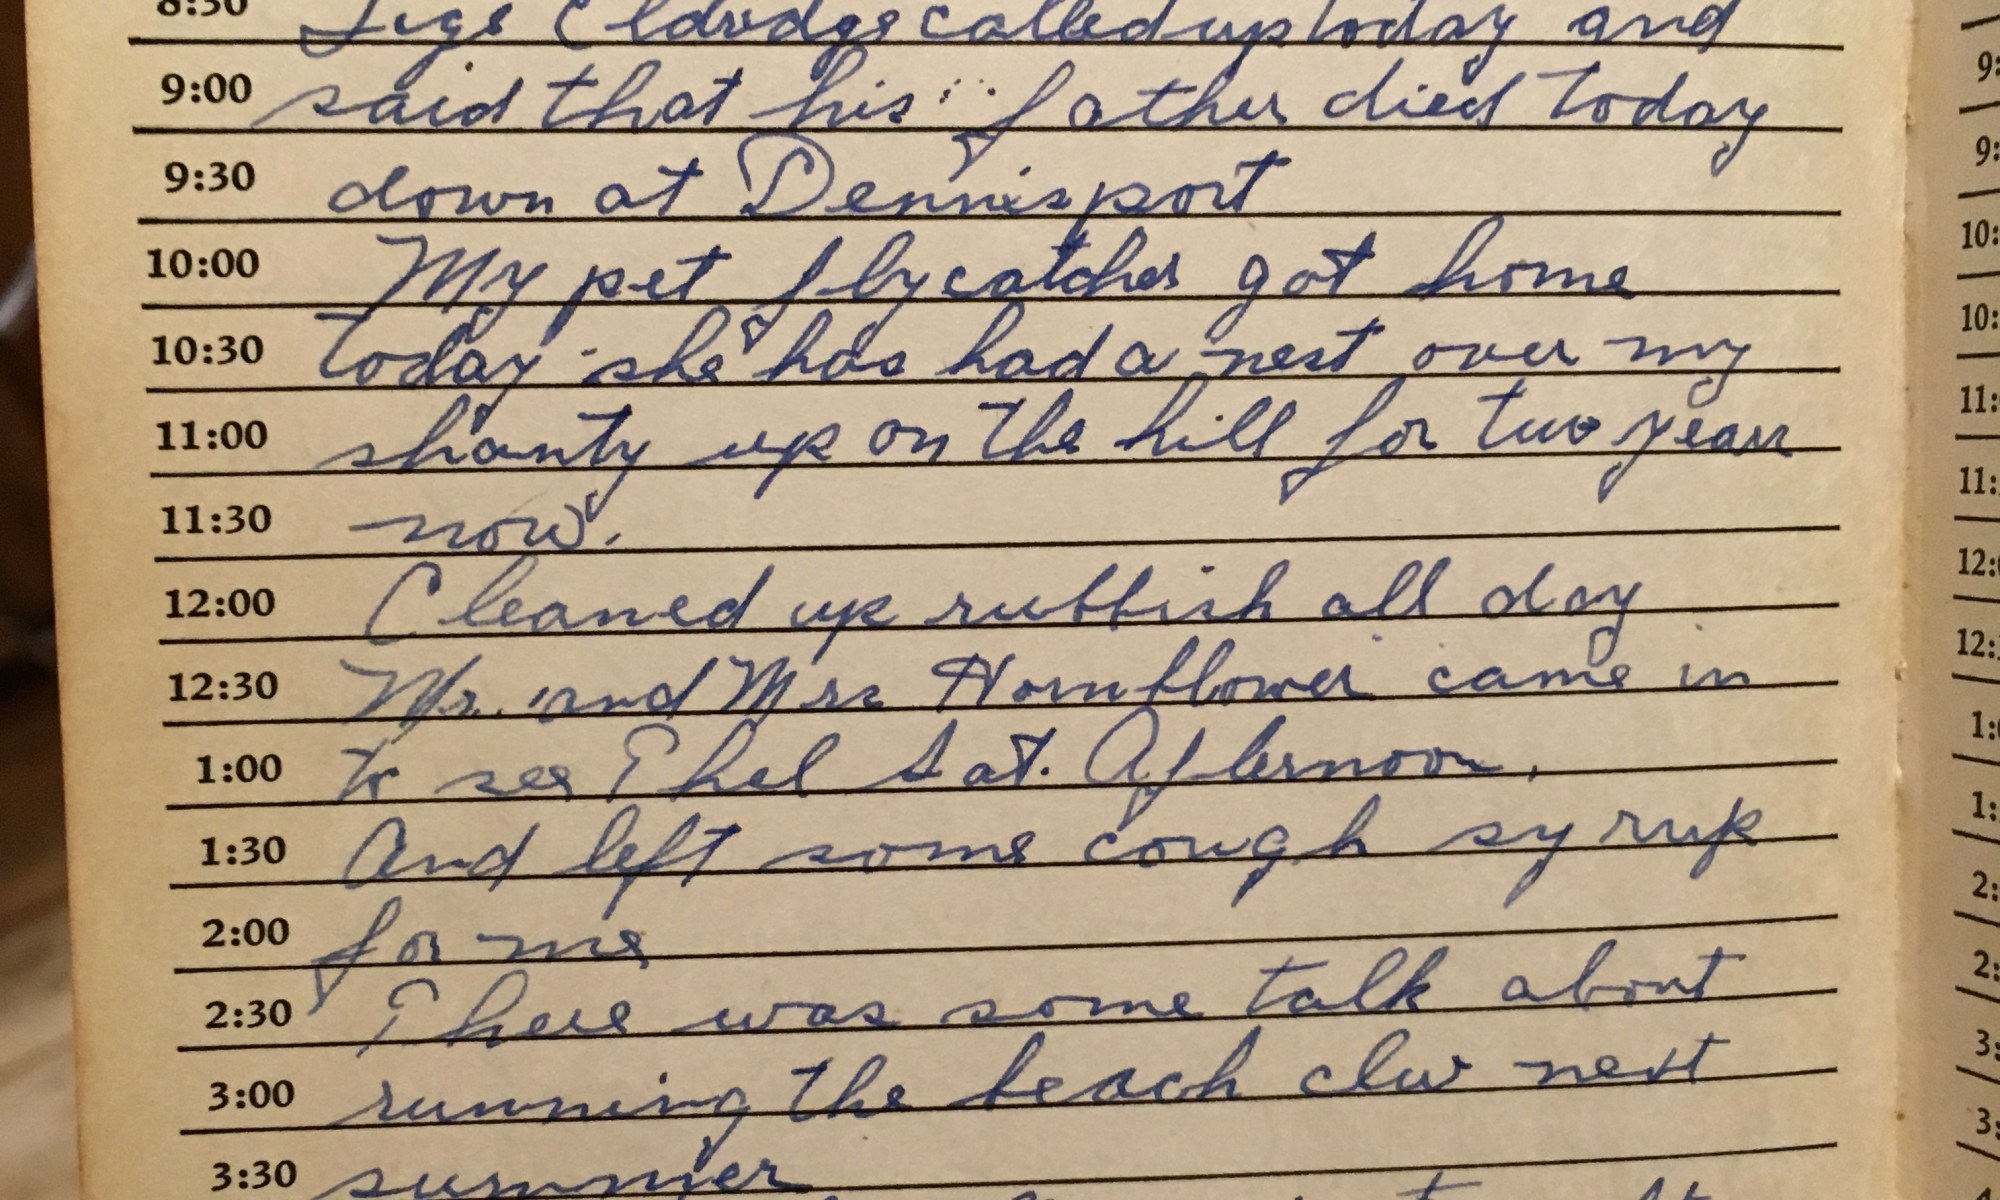 8:30 Eldredge called up today and
9:00 said that his father died today
9:30 down at Dennisport
10:00 My pet flycatcher got home
10:30 today she has had a nest over my
11:00 shanty up on the hill for two years
11:30 now.
12:00 Cleaned up rubbish all day
12:30 Mr. and Mrs Hornflower came in
1:00 to see Thel Sat. Afternoon.
1:30 And left some cough syrup
2:00 for me
2:30 There was some talk about
3:00 running the beach clu next
3:30 summer
9:
9:
10:
10:
11:
11:
12:
12:
1:
1:
2:
2:
3:
3: